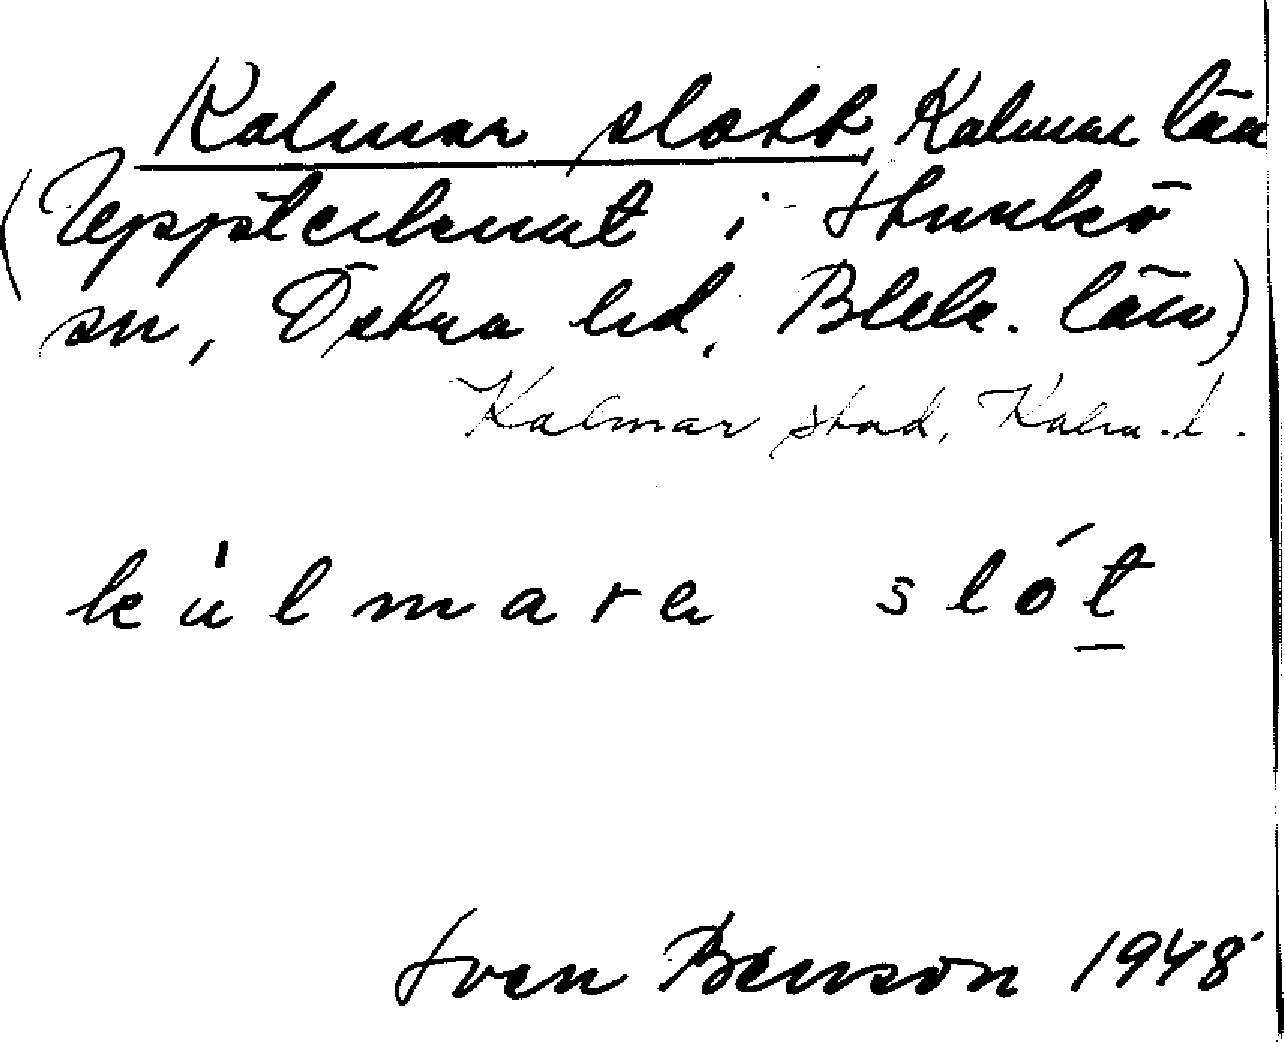 Kalmar slott, Kalmar län
(Upptecknat i Sturkö
sn, Östra hd, Blek. län)
Kalmar stad, Kalm. l.
kàlmara slót
Sven Benson 1948